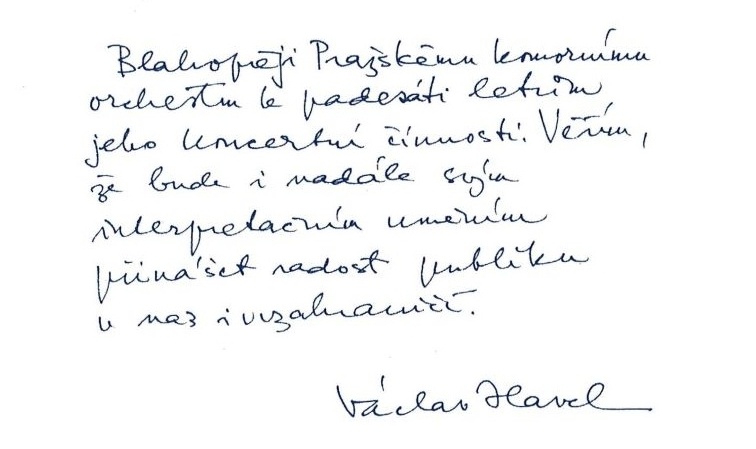 Blahopřeji Pražskému komornímu
orchestru k padesáti letům
jeho koncertní činnosti. Věřím,
že bude i nadále svým
interpretačním uměním
přinášet radost publiku
u nás i v zahraničí.
Václav Havel